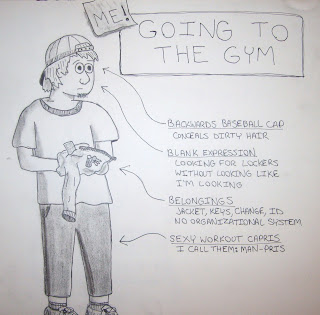 ME!
GOING TO
THE GYM
BACKWARDS BASEBALL CAP
CONCEALS DIRTY HAIR
BLANK EXPRESSION
LOOKING FOR LOCKERS
WITHOUT LOOKING LIKE
I'M LOOKING
BELONGINGS
JACKET, KEYS, CHANGE, ID
NO ORGANIZATIONAL SYSTEM
SEXY WORKOUT CAPRIS
I CALL THEM: MAN-PRIS